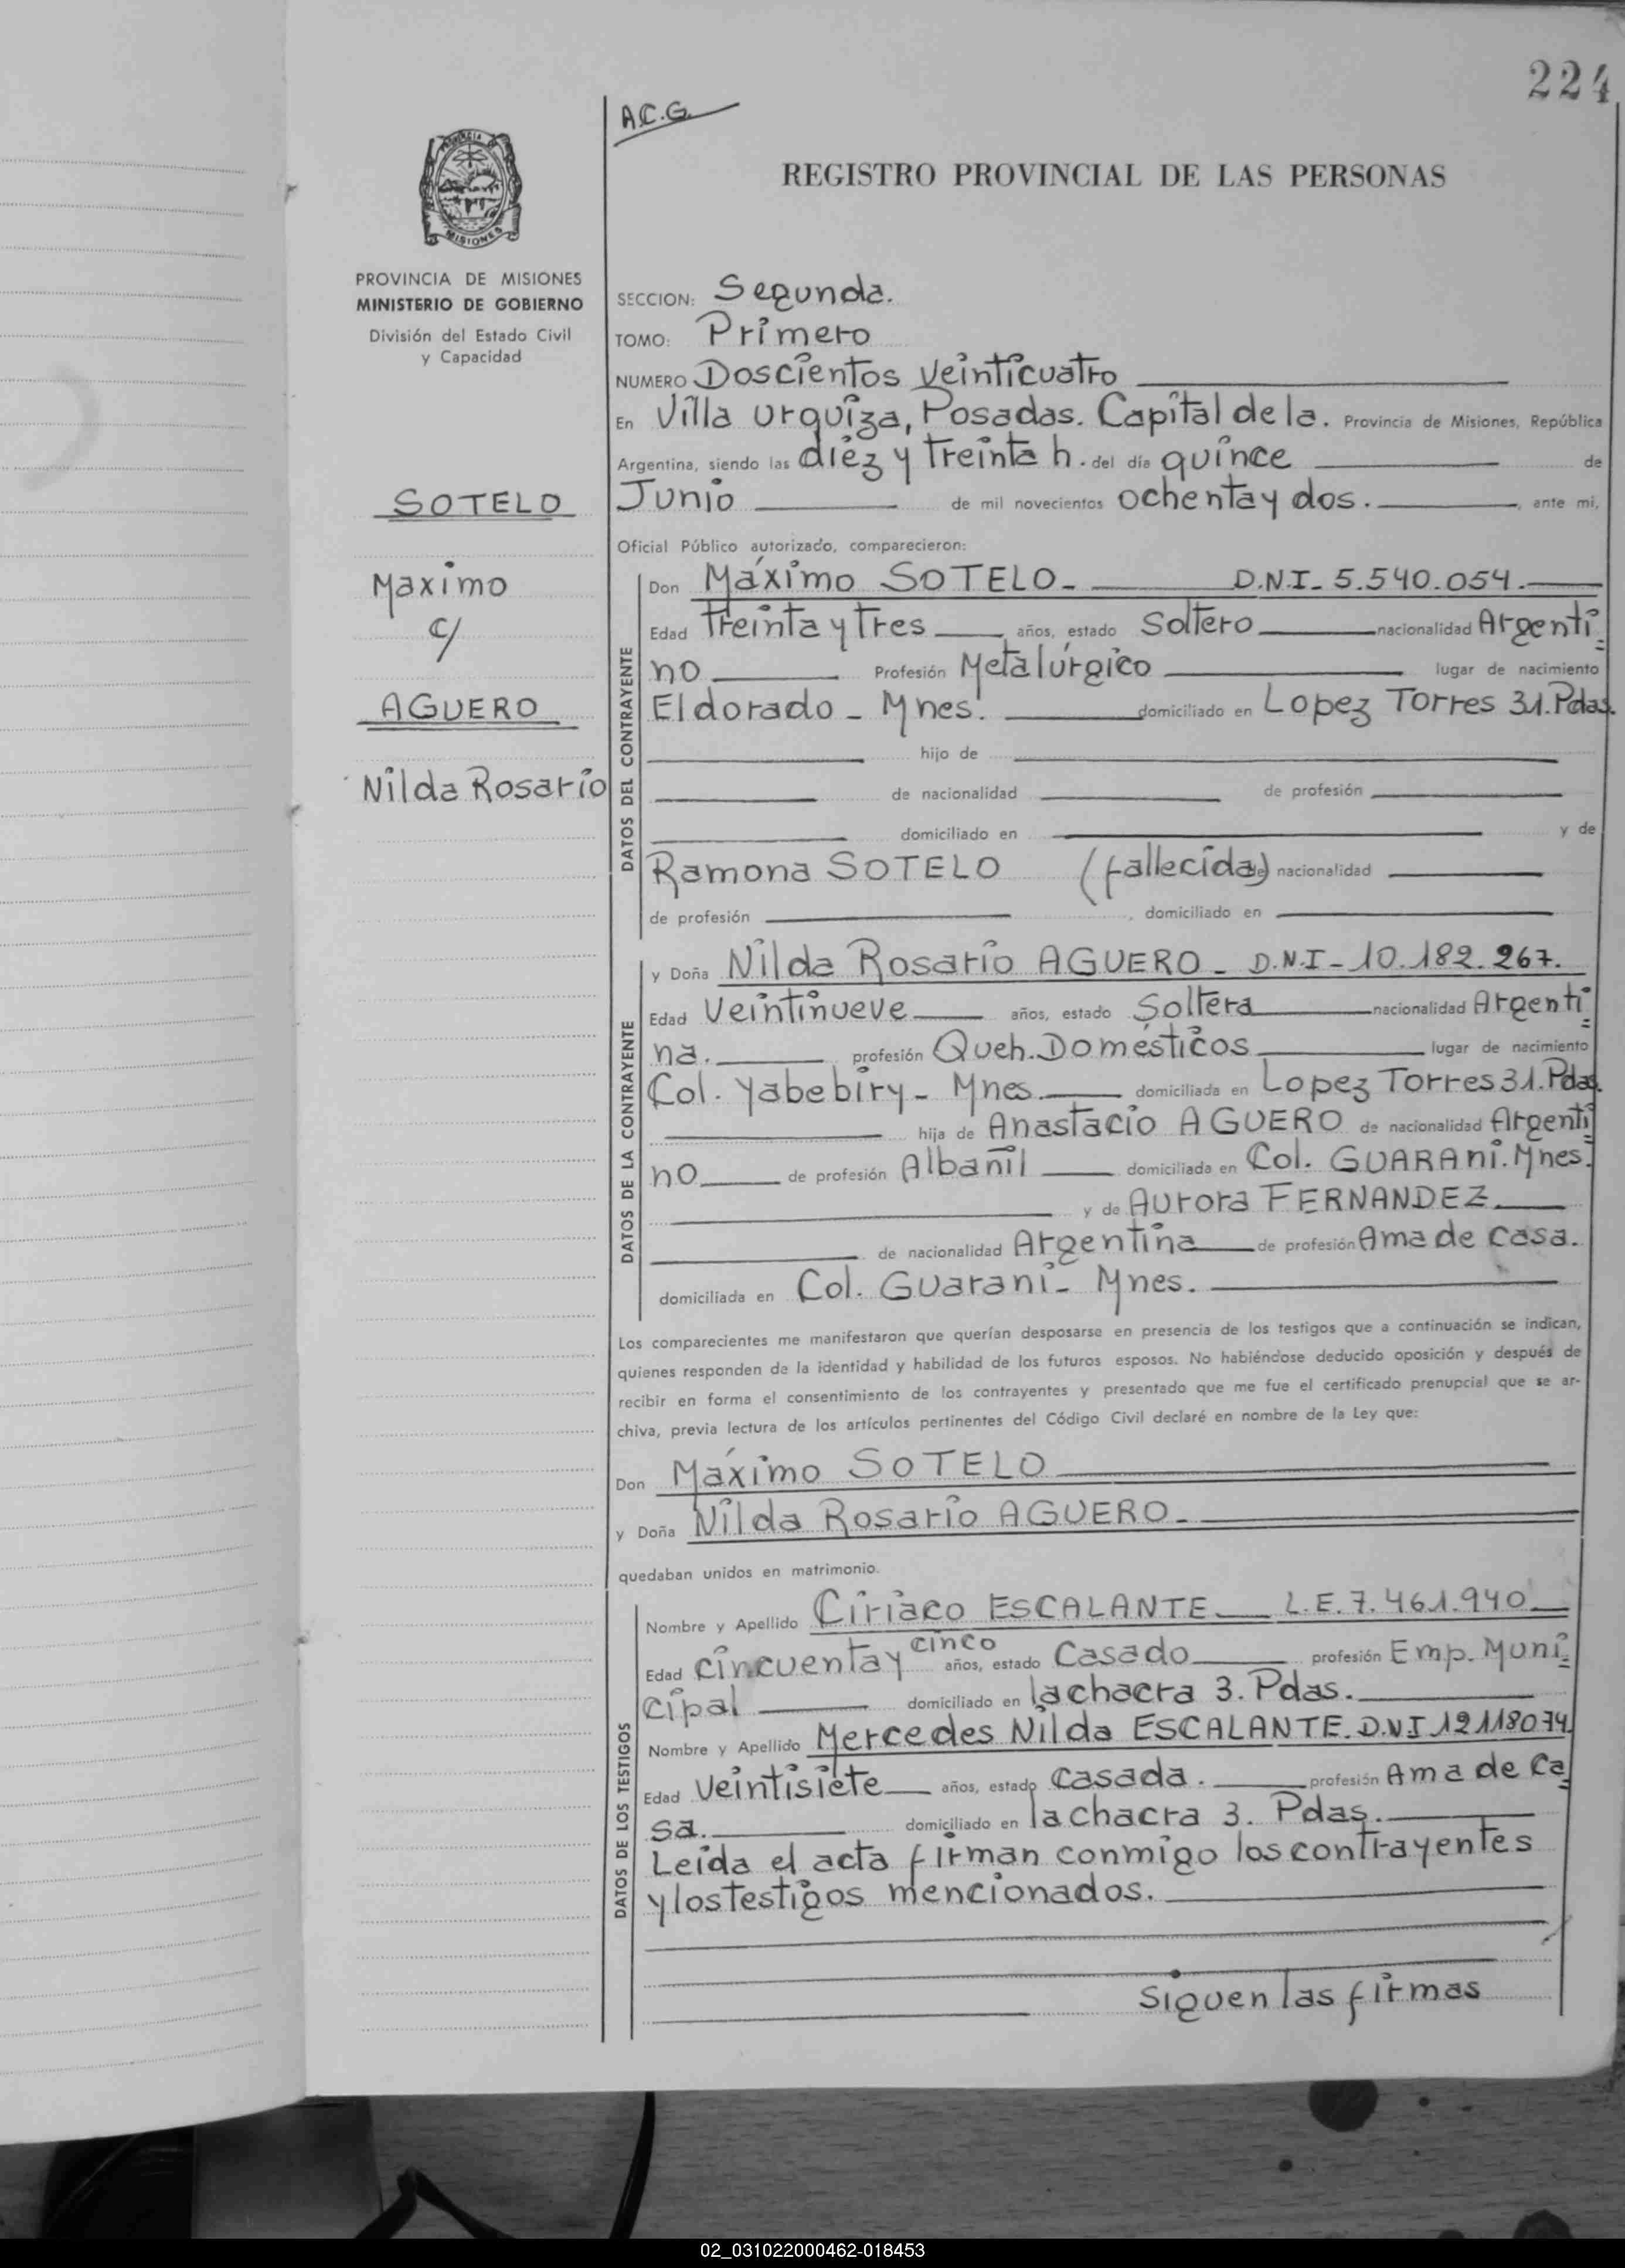 224
A.C.G.
PROVINCIA DE MISIONES
MISIONES
REGISTRO PROVINCIAL DE LAS PERSONAS
PROVINCIA DE MISIONES
MINISTERIO DE GOBIERNO
División del Estado Civil
y Capacidad
SOTELO
Maximo
c/
AGUERO
Nilda Rosario
SECCION: Segunda.
TOMO: Primero
NUMERO Doscientos veinticuatro
En Villa Urquiza, Posadas. Capital de la. Provincia de Misiones, República
Argentina, siendo las diéz y treinta h. del día quince de
Junio de mil novecientos ochenta y dos. , ante mi,
Oficial Público autorizado, comparecieron:
DATOS DEL CONTRAYENTE
Don Máximo SOTELO- D.N.I- 5.540.054.
Edad treinta y tres años, estado Soltero nacionalidad Argenti=
no Profesión Metalúrgico lugar de nacimiento
Eldorado - Mnes. domiciliado en Lopez Torres 31. Pdas.
hijo de
de nacionalidad de profesión
domiciliado en y de
Ramona SOTELO (fallecida) de nacionalidad
de profesión , domiciliado en
DATOS DE LA CONTRAYENTE
y Doña Nilda Rosario AGUERO - D.N.I - 10.182.267.
Edad Veintinueve años, estado Soltera nacionalidad Argenti=
na. profesión Queh. Domésticos lugar de nacimiento
Col. Yabebiry - Mnes. domiciliada en Lopez Torres 31. Pdas.
hija de Anastacio AGUERO de nacionalidad Argenti
no de profesión Albañil domiciliada en Col. GUARANi. Mnes.
y de Aurora FERNANDEZ
de nacionalidad Argentina de profesión Ama de casa.
domiciliada en Col. Guarani - Mnes.
Los comparecientes me manifestaron que querían desposarse en presencia de los testigos que a continuación se indican,
quienes responden de la identidad y habilidad de los futuros esposos. No habiéndose deducido oposición y después de
recibir en forma el consentimiento de los contrayentes y presentado que me fue el certificado prenupcial que se ar-
chiva, previa lectura de los artículos pertinentes del Código Civil declaré en nombre de la Ley que:
Don Máximo SOTELO
y Doña Nilda Rosario AGUERO -
quedaban unidos en matrimonio.
DATOS DE LOS TESTIGOS
Nombre y Apellido Ciriaco ESCALANTE L.E. 7.461.940
Edad cincuenta y cinco años, estado Casado profesión Emp. Muni=
cipal domiciliado en la chacra 3. Pdas.
Nombre y Apellido Mercedes Nilda ESCALANTE. D.N.I 12118074
Edad Veintisiete años, estado casada. profesión Ama de Ca
sa. domiciliado en la chacra 3. Pdas.
Leida el acta firman conmigo los contrayentes
y los testigos mencionados.
Siguen las firmas
02_031022000462-018453